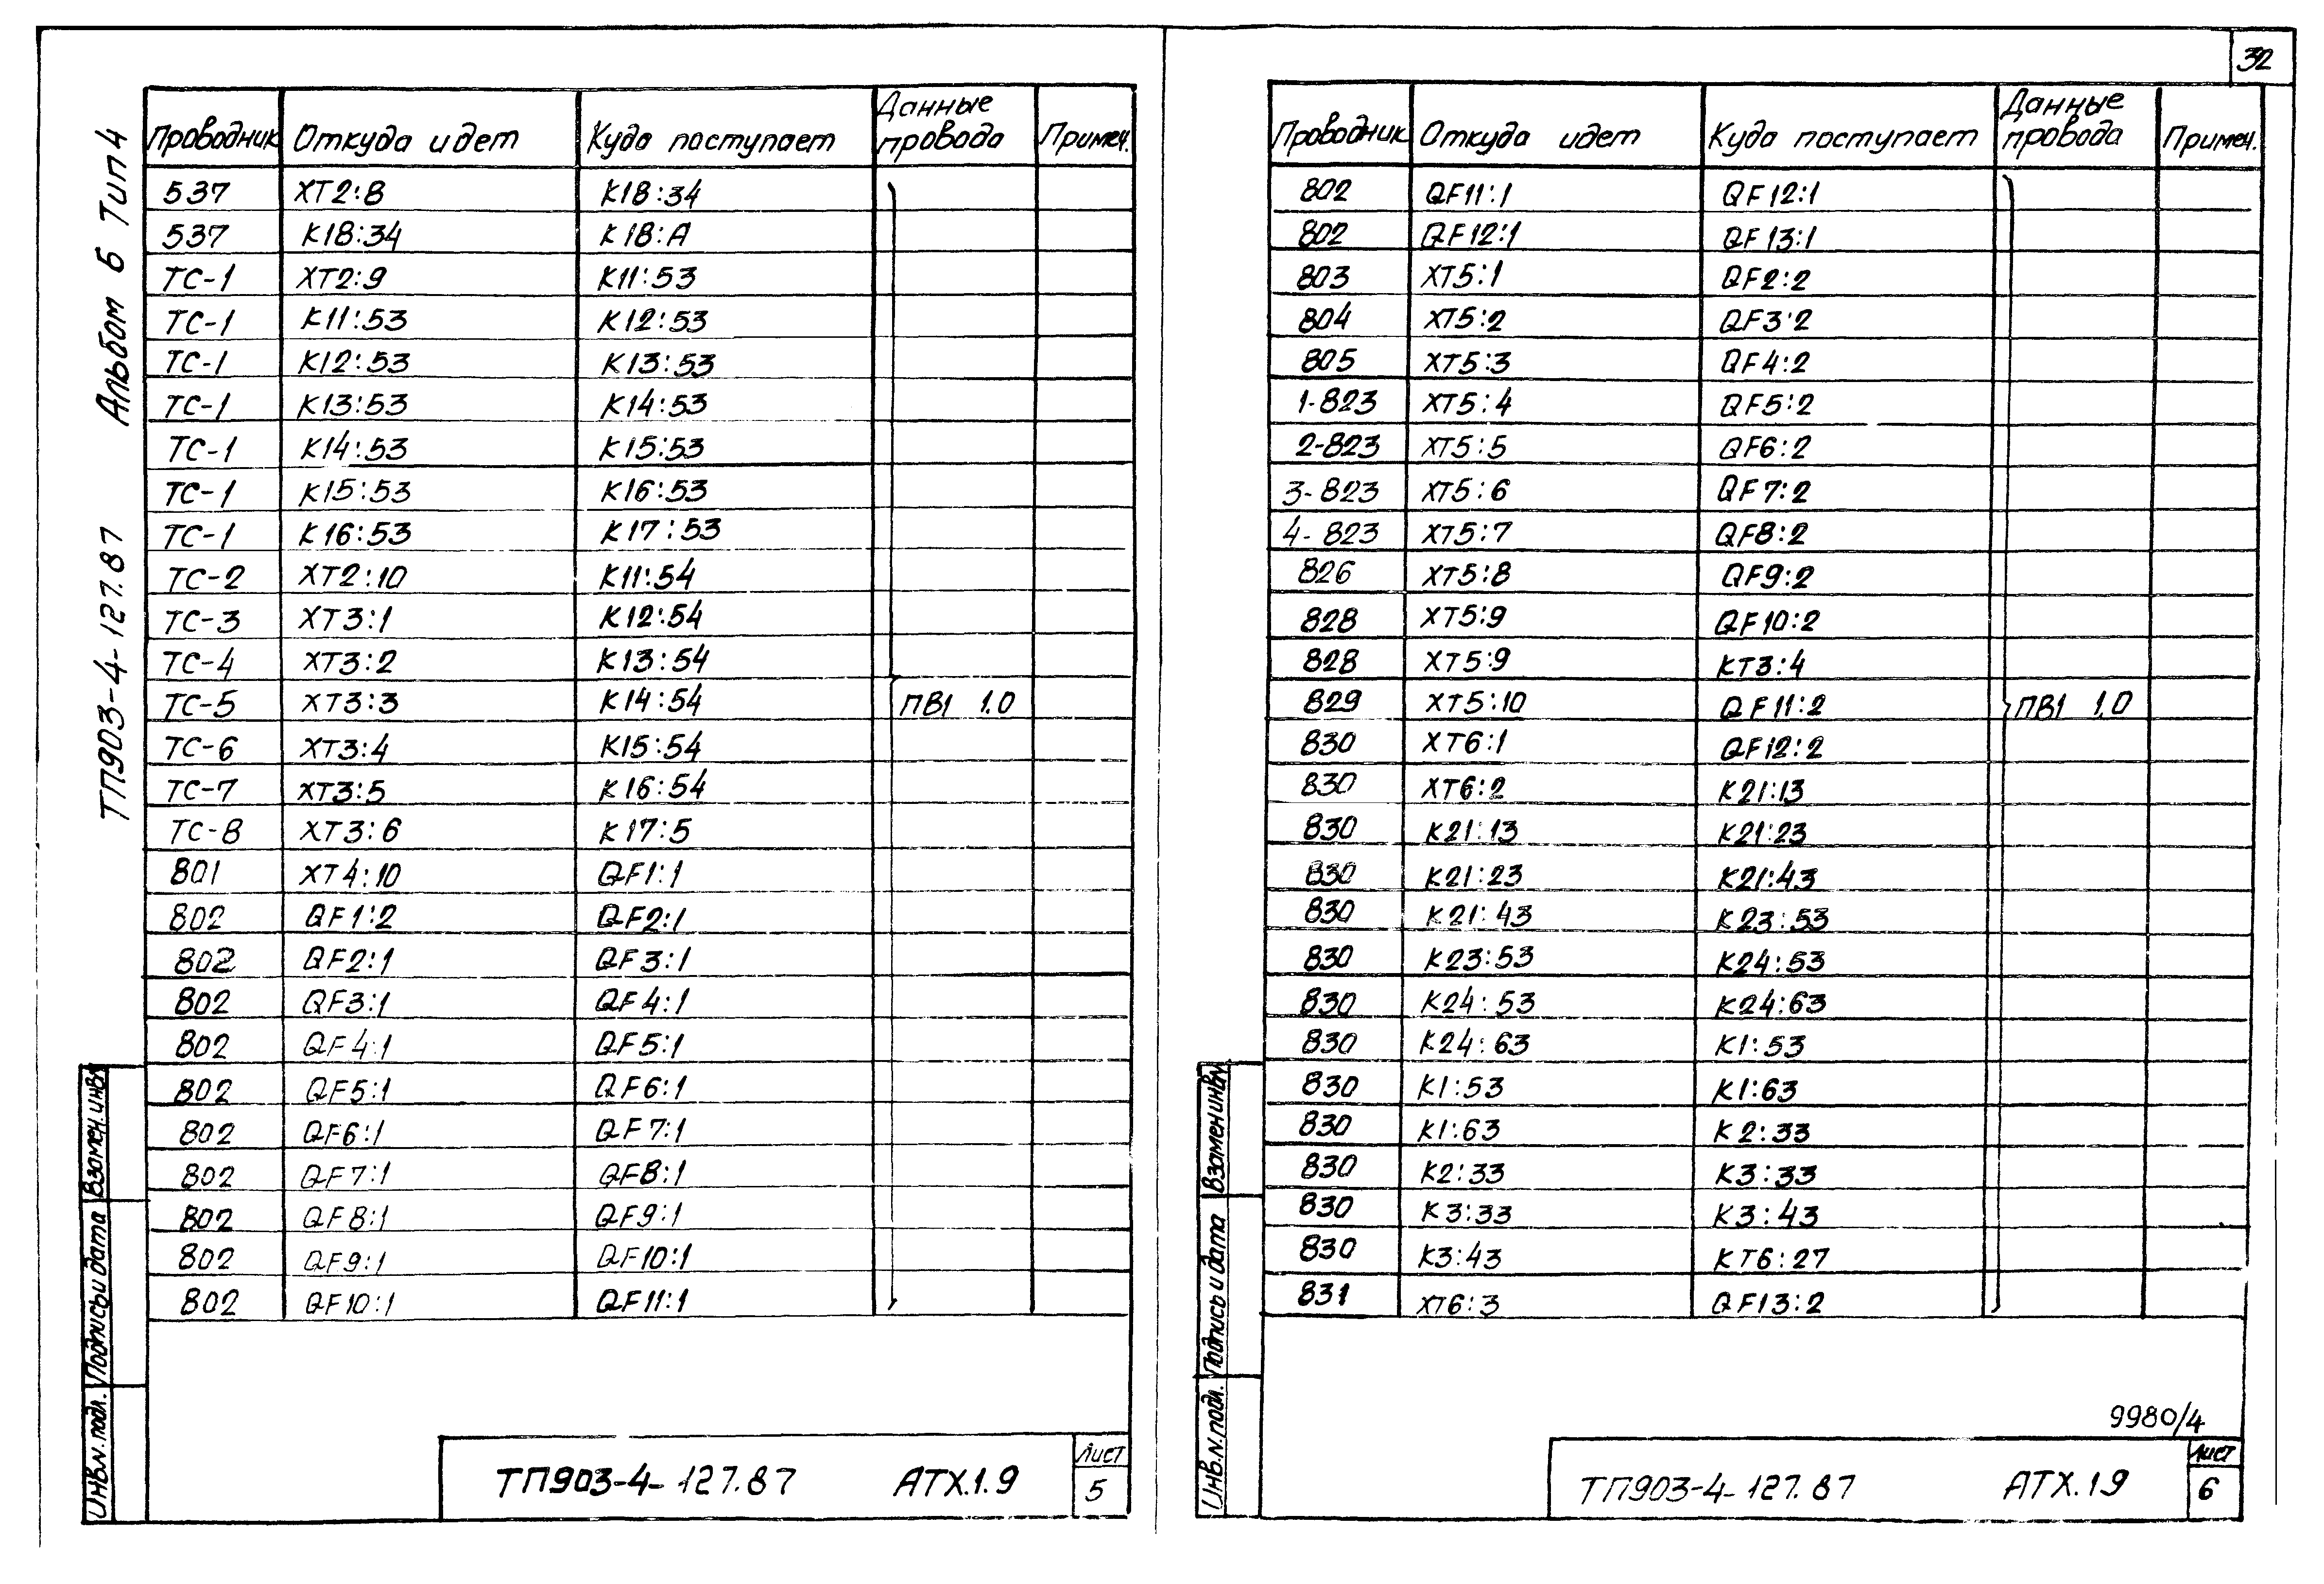 32
Альбом 6 Тип 4
ТП903-4-127.87
Проводник Откуда идет Куда поступает Данные провода Примеч.
537 XT2:8 K18:34
537 K18:34 K18:A
TC-1 XT2:9 K11:53
TC-1 K11:53 K12:53
TC-1 K12:53 K13:53
TC-1 K13:53 K14:53
TC-1 K14:53 K15:53
TC-1 K15:53 K16:53
TC-1 K16:53 K17:53
TC-2 XT2:10 K11:54
TC-3 XT3:1 K12:54
TC-4 XT3:2 K13:54
TC-5 XT3:3 K14:54 ПВ1 1.0
TC-6 XT3:4 K15:54
TC-7 XT3:5 K16:54
TC-8 XT3:6 K17:5
801 XT4:10 QF1:1
802 QF1:2 QF2:1
802 QF2:1 QF3:1
802 QF3:1 QF4:1
802 QF4:1 QF5:1
802 QF5:1 QF6:1
802 QF6:1 QF7:1
802 QF7:1 QF8:1
802 QF8:1 QF9:1
802 QF9:1 QF10:1
802 QF10:1 QF11:1
Инв.N.подл. Подпись и дата Взамен.инв.N
ТП903-4-127.87 АТХ.1.9 Лист 5
Проводник Откуда идет Куда поступает Данные провода Примеч.
802 QF11:1 QF12:1
802 QF12:1 QF13:1
803 XT5:1 QF2:2
804 XT5:2 QF3:2
805 XT5:3 QF4:2
1-823 XT5:4 QF5:2
2-823 XT5:5 QF6:2
3-823 XT5:6 QF7:2
4-823 XT5:7 QF8:2
826 XT5:8 QF9:2
828 XT5:9 QF10:2
828 XT5:9 KT3:4
829 XT5:10 QF11:2 ПВ1 1.0
830 XT6:1 QF12:2
830 XT6:2 K21:13
830 K21:13 K21:23
830 K21:23 K21:43
830 K21:43 K23:53
830 K23:53 K24:53
830 K24:53 K24:63
830 K24:63 K1:53
830 K1:53 K1:63
830 K1:63 K2:33
830 K2:33 K3:33
830 K3:33 K3:43
830 K3:43 KT6:27
831 XT6:3 QF13:2
Инв.N.подл. Подпись и дата Взамен инв.N
9980/4
ТП903-4-127.87 АТХ.1.9 Лист 6